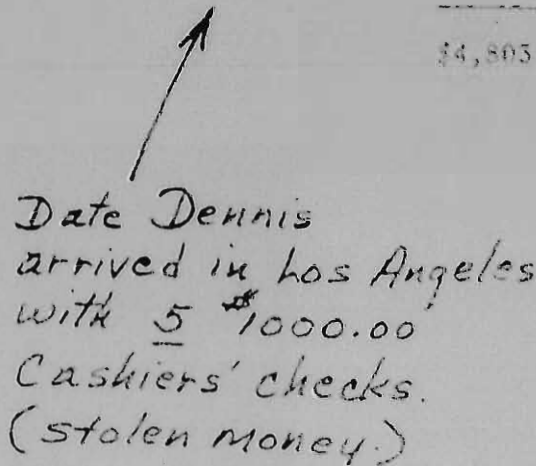 $4,803
Date Dennis
arrived in Los Angeles
with 5 $1000.00
Cashiers' checks.
(stolen money.)